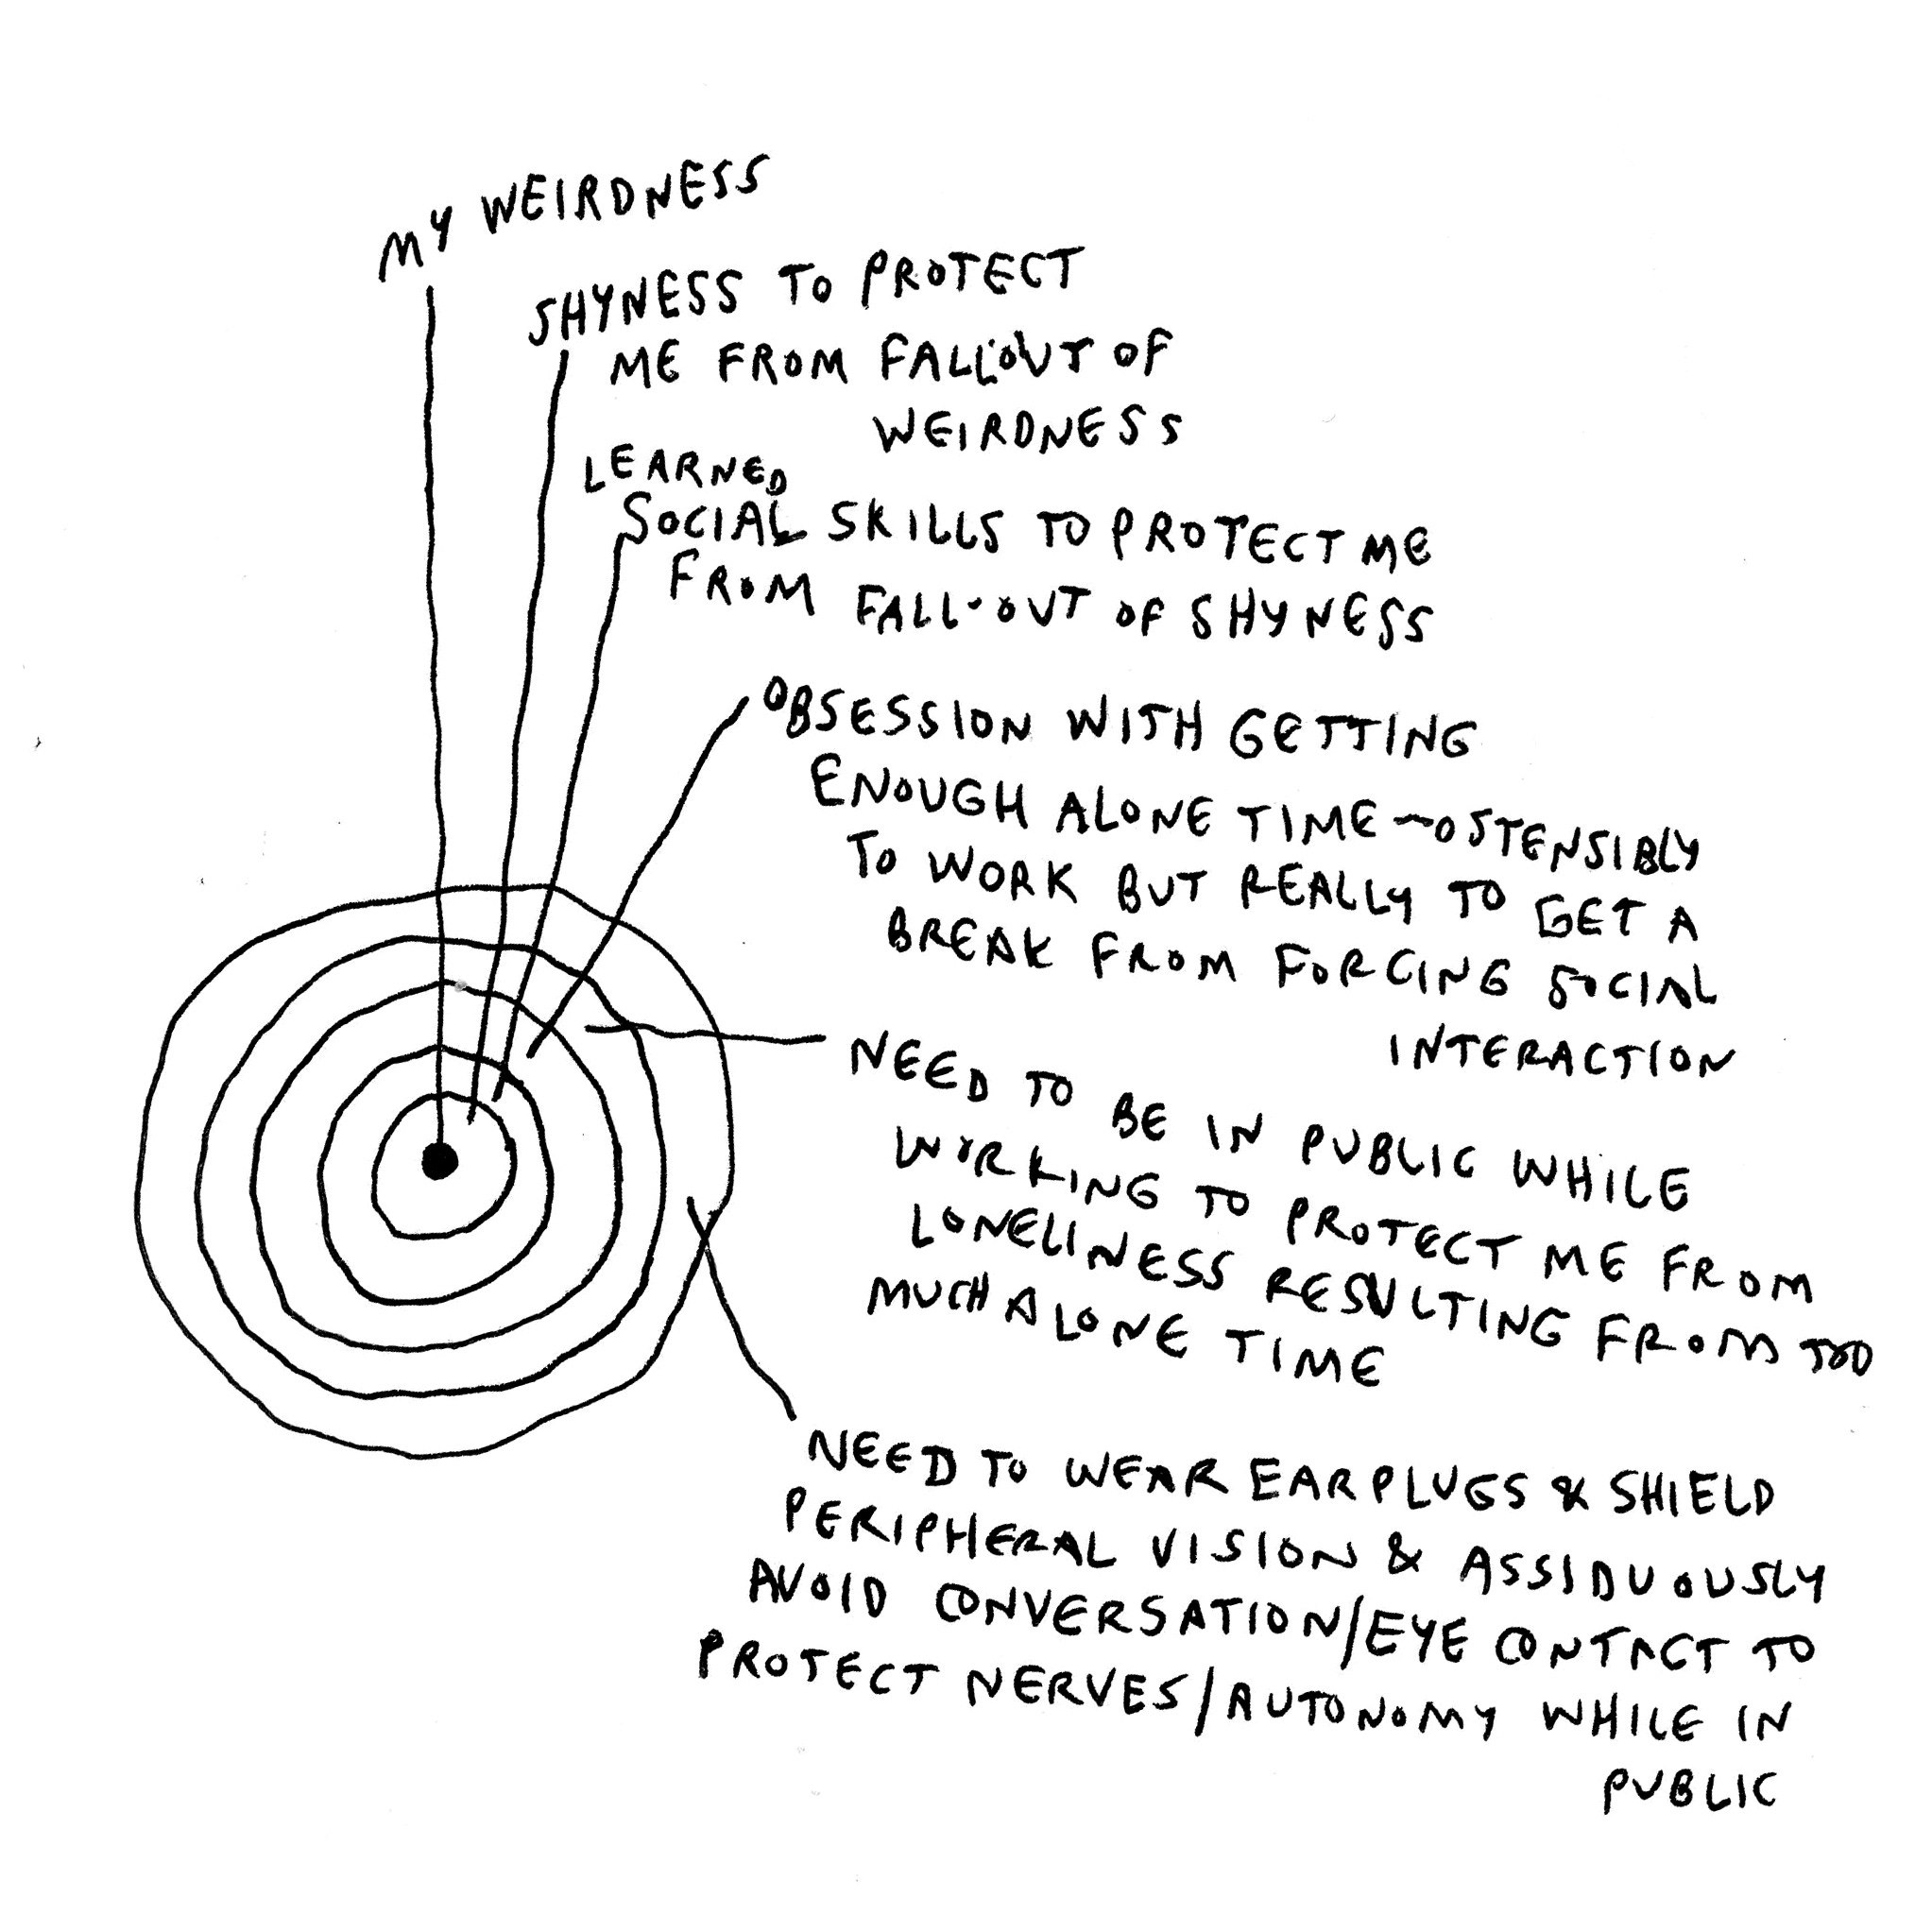 MY WEIRDNESS
SHYNESS TO PROTECT
ME FROM FALL-OUT OF
WEIRDNESS
LEARNED
SOCIAL SKILLS TO PROTECT ME
FROM FALL-OUT OF SHYNESS
OBSESSION WITH GETTING
ENOUGH ALONE TIME - OSTENSIBLY
TO WORK BUT REALLY TO GET A
BREAK FROM FORCING SOCIAL
INTERACTION
NEED TO BE IN PUBLIC WHILE
WORKING TO PROTECT ME FROM
LONELINESS RESULTING FROM TOO
MUCH ALONE TIME
NEED TO WEAR EARPLUGS & SHIELD
PERIPHERAL VISION & ASSIDUOUSLY
AVOID CONVERSATION/EYE CONTACT TO
PROTECT NERVES/AUTONOMY WHILE IN
PUBLIC